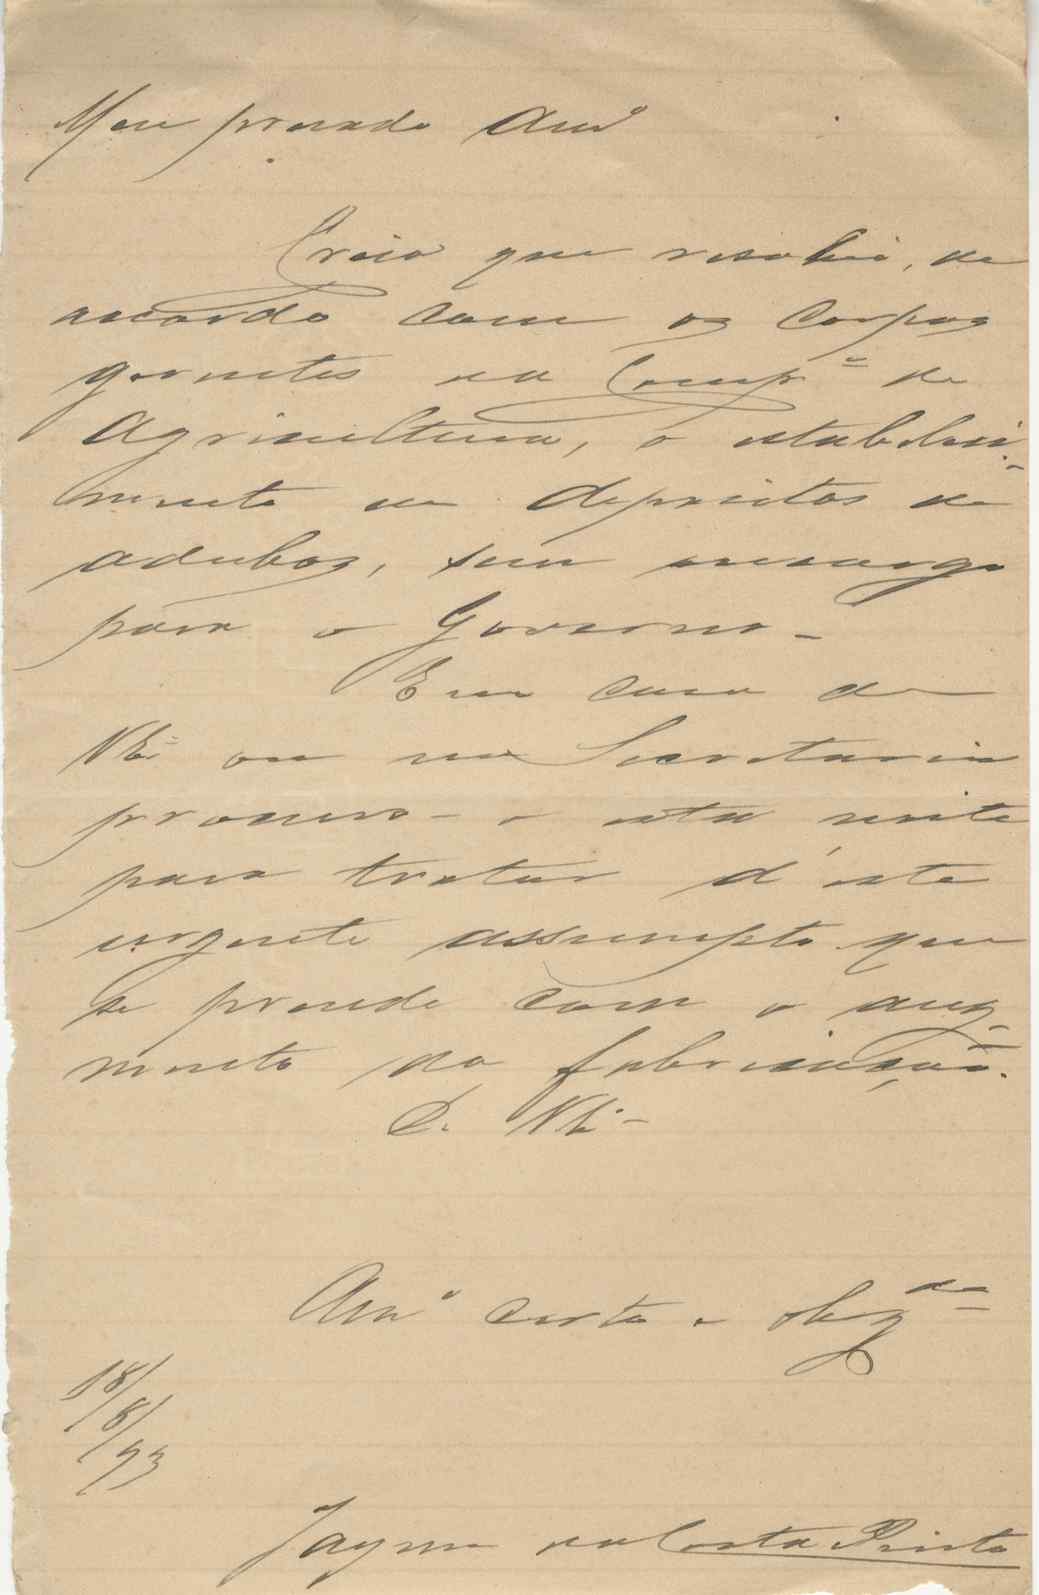 Meu presado Amº
Creio que resolvi, de
accordo com os corpos
gerentes da Compª de
Agricultura, o estabeleci-
mento de depositos de
adubos, sem encargo
para o Governo -
Em casa de
V. Exª ou na Secretaria
procuro-o esta noite
para tratar d'este
urgente assumpto que
se prende com o aug-
mento da fabricação.
De V. Exª
Amº certo e obgdo
18/8/93
Jayme da Costa Pinto